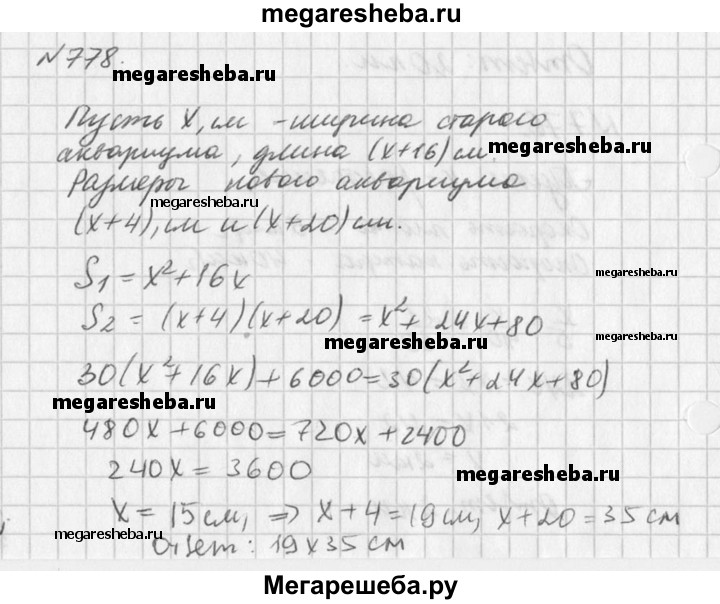 megaresheba.ru
№778.
megaresheba.ru
Пусть x, см - ширина старого
аквариума, длина (x+16) см.
megaresheba.ru
Размеры нового аквариума
megaresheba.ru
(x+4), см и (x+20) см.
S1 = x²+16x
megaresheba.ru
S2 = (x+4)(x+20) = x²+24x+80
megaresheba.ru
megaresheba.ru
30(x²+16x)+6000=30(x²+24x+80)
megaresheba.ru
480x+6000=720x+2400
240x = 3600
megaresheba.ru
x = 15 см, ⇒ x+4=19 см, x+20=35 см
megaresheba.ru
Ответ: 19x35 см
Мегарешеба.ру